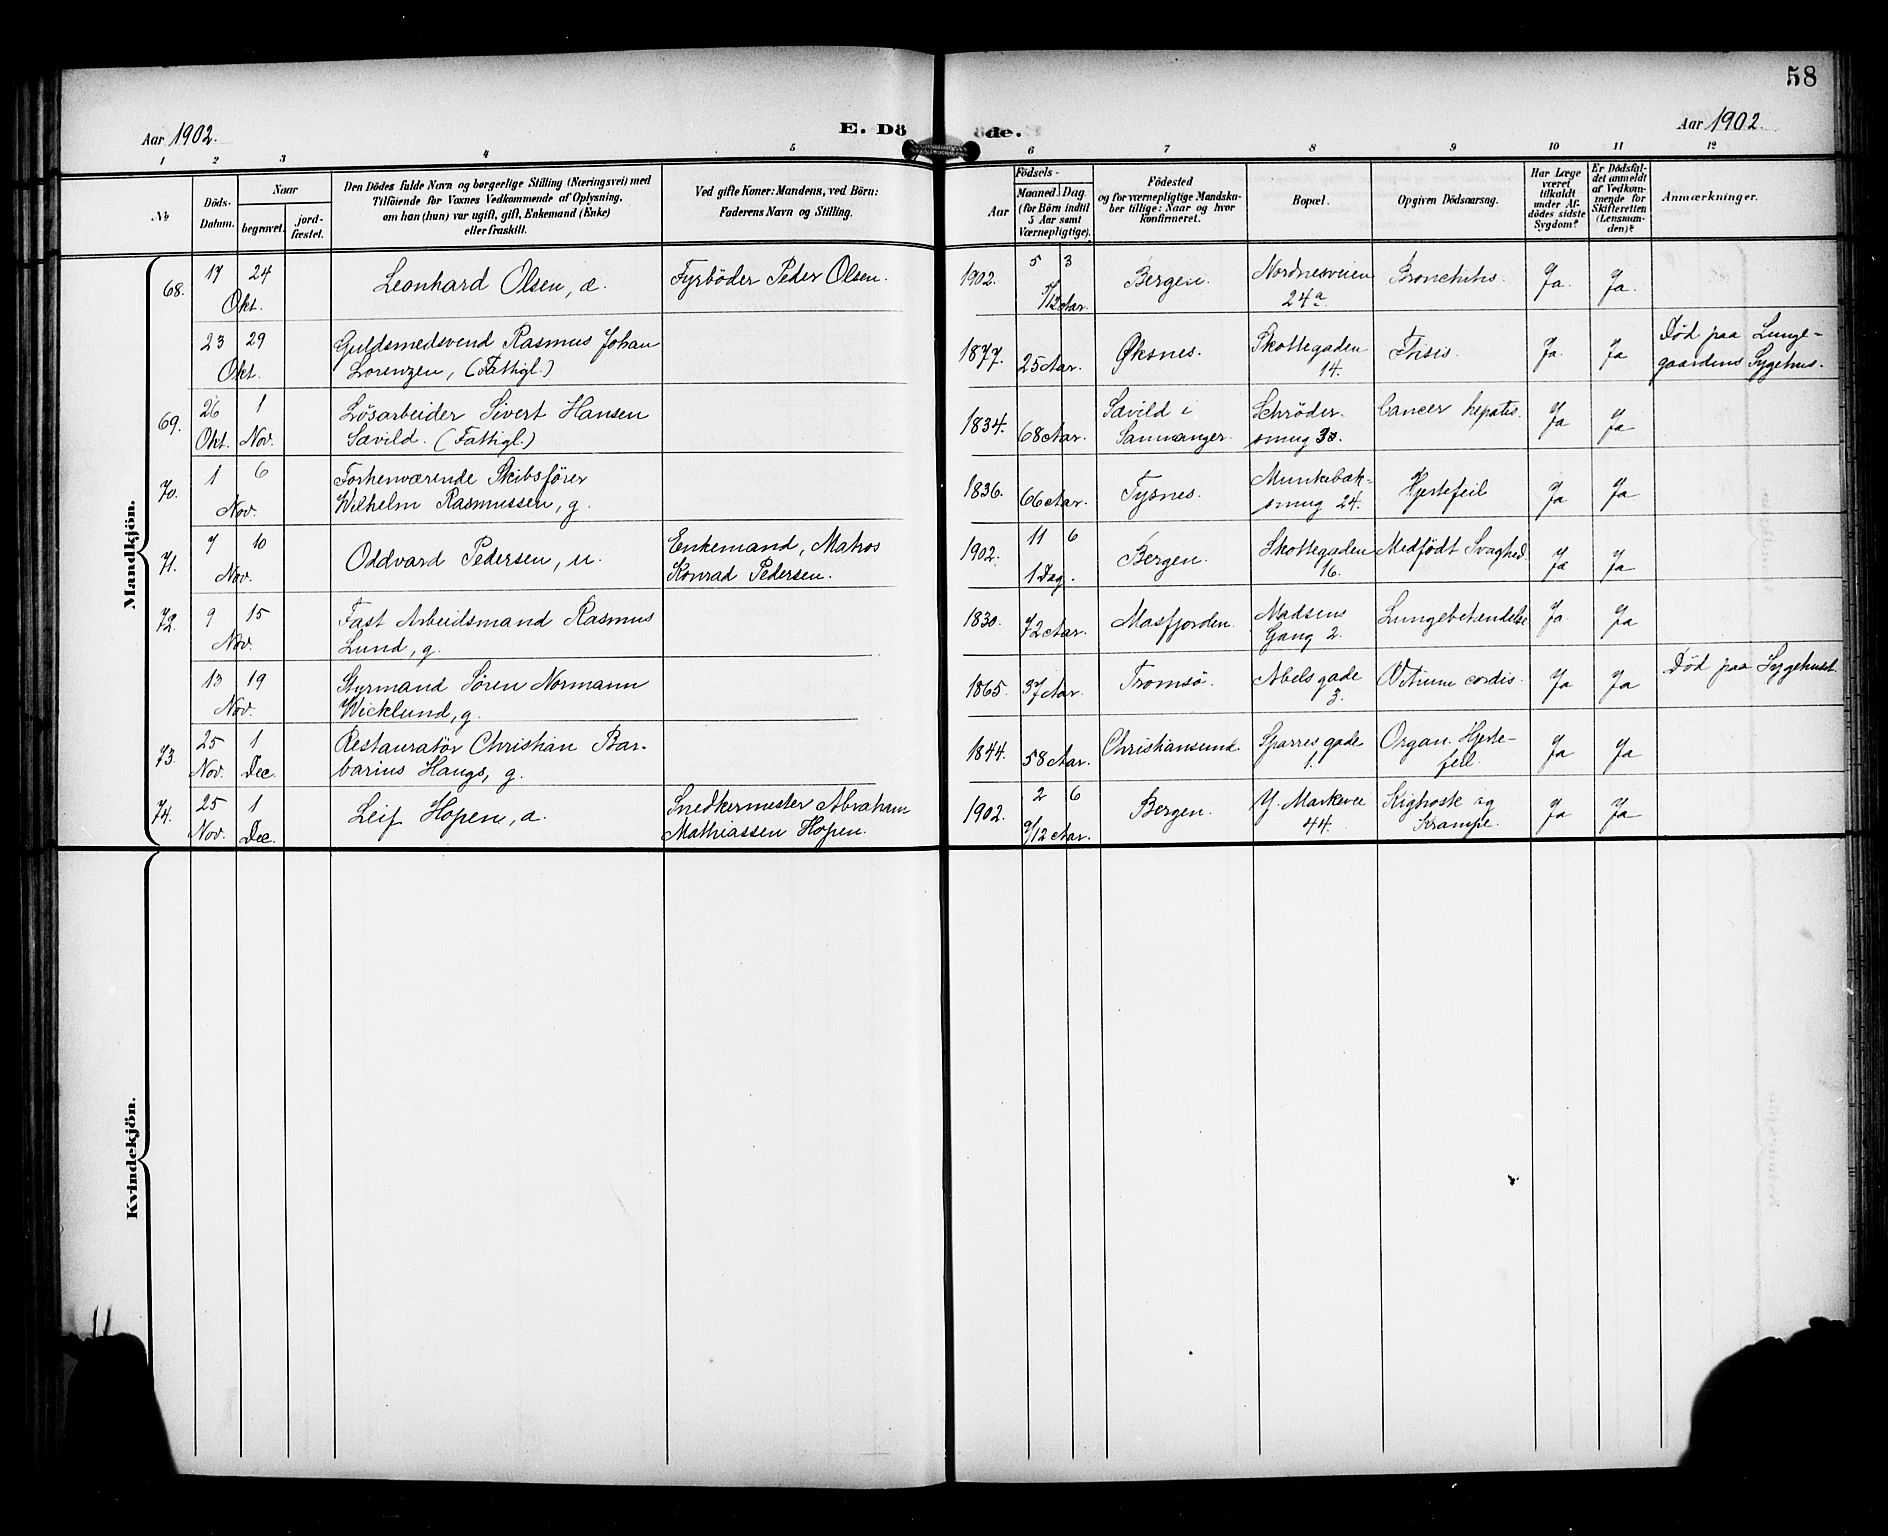 58
Aar 1902.
E. Dö de.
Aar 1902.
1 2 3 4 5 6 7 8 9 10 11 12
No
Döds-
Datum.
Naar
begravet.
jord-
fæstet.
Den Dödes fulde Navn og borgerlige Stilling (Næringsvei) med
Tilföiende for Voxnes Vedkommende af Oplysning,
om han (hun) var ugift, gift, Enkemand (Enke)
eller fraskilt.
Ved gifte Koner: Mandens, ved Börn:
Faderens Navn og Stilling.
Födsels-
Aar
Maaned. Dag
(for Börn indtil
5 Aar samt
Værnepligtige).
Födested
og for værnepligtige Mandska-
ber tillige: Naar og hvor
konfirmeret.
Bopæl.
Opgiven Dödsaarsag.
Har Læge
været
tilkaldt
under Af-
dödes sidste
Sygdom?
Er Dödsfal-
det anmeldt
af Vedkom-
mende for
Skifteretten
(Lensman-
den)?
Anmærkninger.
Mandkjön.
68. 17 24 Okt. Leonhard Olsen, æ. Fyrböder Peder Olsen. 1902. 5 3
5/12 Aar. Bergen. Nordnesveien
24a. Bronchitis. Ja. Ja.
23 29 Okt. Guldsmedsvend Rasmus Johan
Lorenzen, (Fattigl.) 1877. 25 Aar. Øksnes. Skottegaden
14. Ftisis. Ja. Ja Död paa Lunge-
gaardens Sygehus.
69. 26 1
Okt. Nov. Lösarbeider Sivert Hansen
Sævild. (Fattigl.) 1834. 68 Aar. Sævild i
Samnanger. Schröder-
smug 30. Cancer hepatis. Ja Ja
70. 1 6 Nov. Forhenværende Skibsförer
Wilhelm Rasmussen, g. 1836. 66 Aar. Tysnes. Munkebæk-
smug 24. Hjertefeil Ja Ja
71. 7 10 Nov. Oddvard Pedersen, u. Enkemand, Matros
Konrad Pedersen. 1902. 11 6
1 Dag. Bergen. Skottegaden
16. Medfödt Svaghed Ja Ja
72. 9 15 Nov. Fast Arbeidsmand Rasmus
Lund, g. 1830. 72 Aar. Masfjorden. Madsens
Gang 2. Lungebetændelse Ja Ja
13 19 Nov. Styrmand Sören Normann
Wicklund, g. 1865. 37 Aar. Tromsö. Abels gade
3. Vitium cordis. Ja Ja Död paa Sygehuset.
73. 25 1
Nov. Dec. Restauratör Christian Bar-
barius Haugs, g. 1844. 58 Aar. Christiansund. Sparres gade
1. Organ. Hjerte-
feil Ja Ja
74. 25 1
Nov. Dec. Leif Hopen, æ. Snedkermester Abraham
Mathiassen Hopen. 1902. 2 6
9/12 Aar. Bergen. Y. Markevei
44. Kighoste og
Krampe. Ja Ja
Kvindekjön.